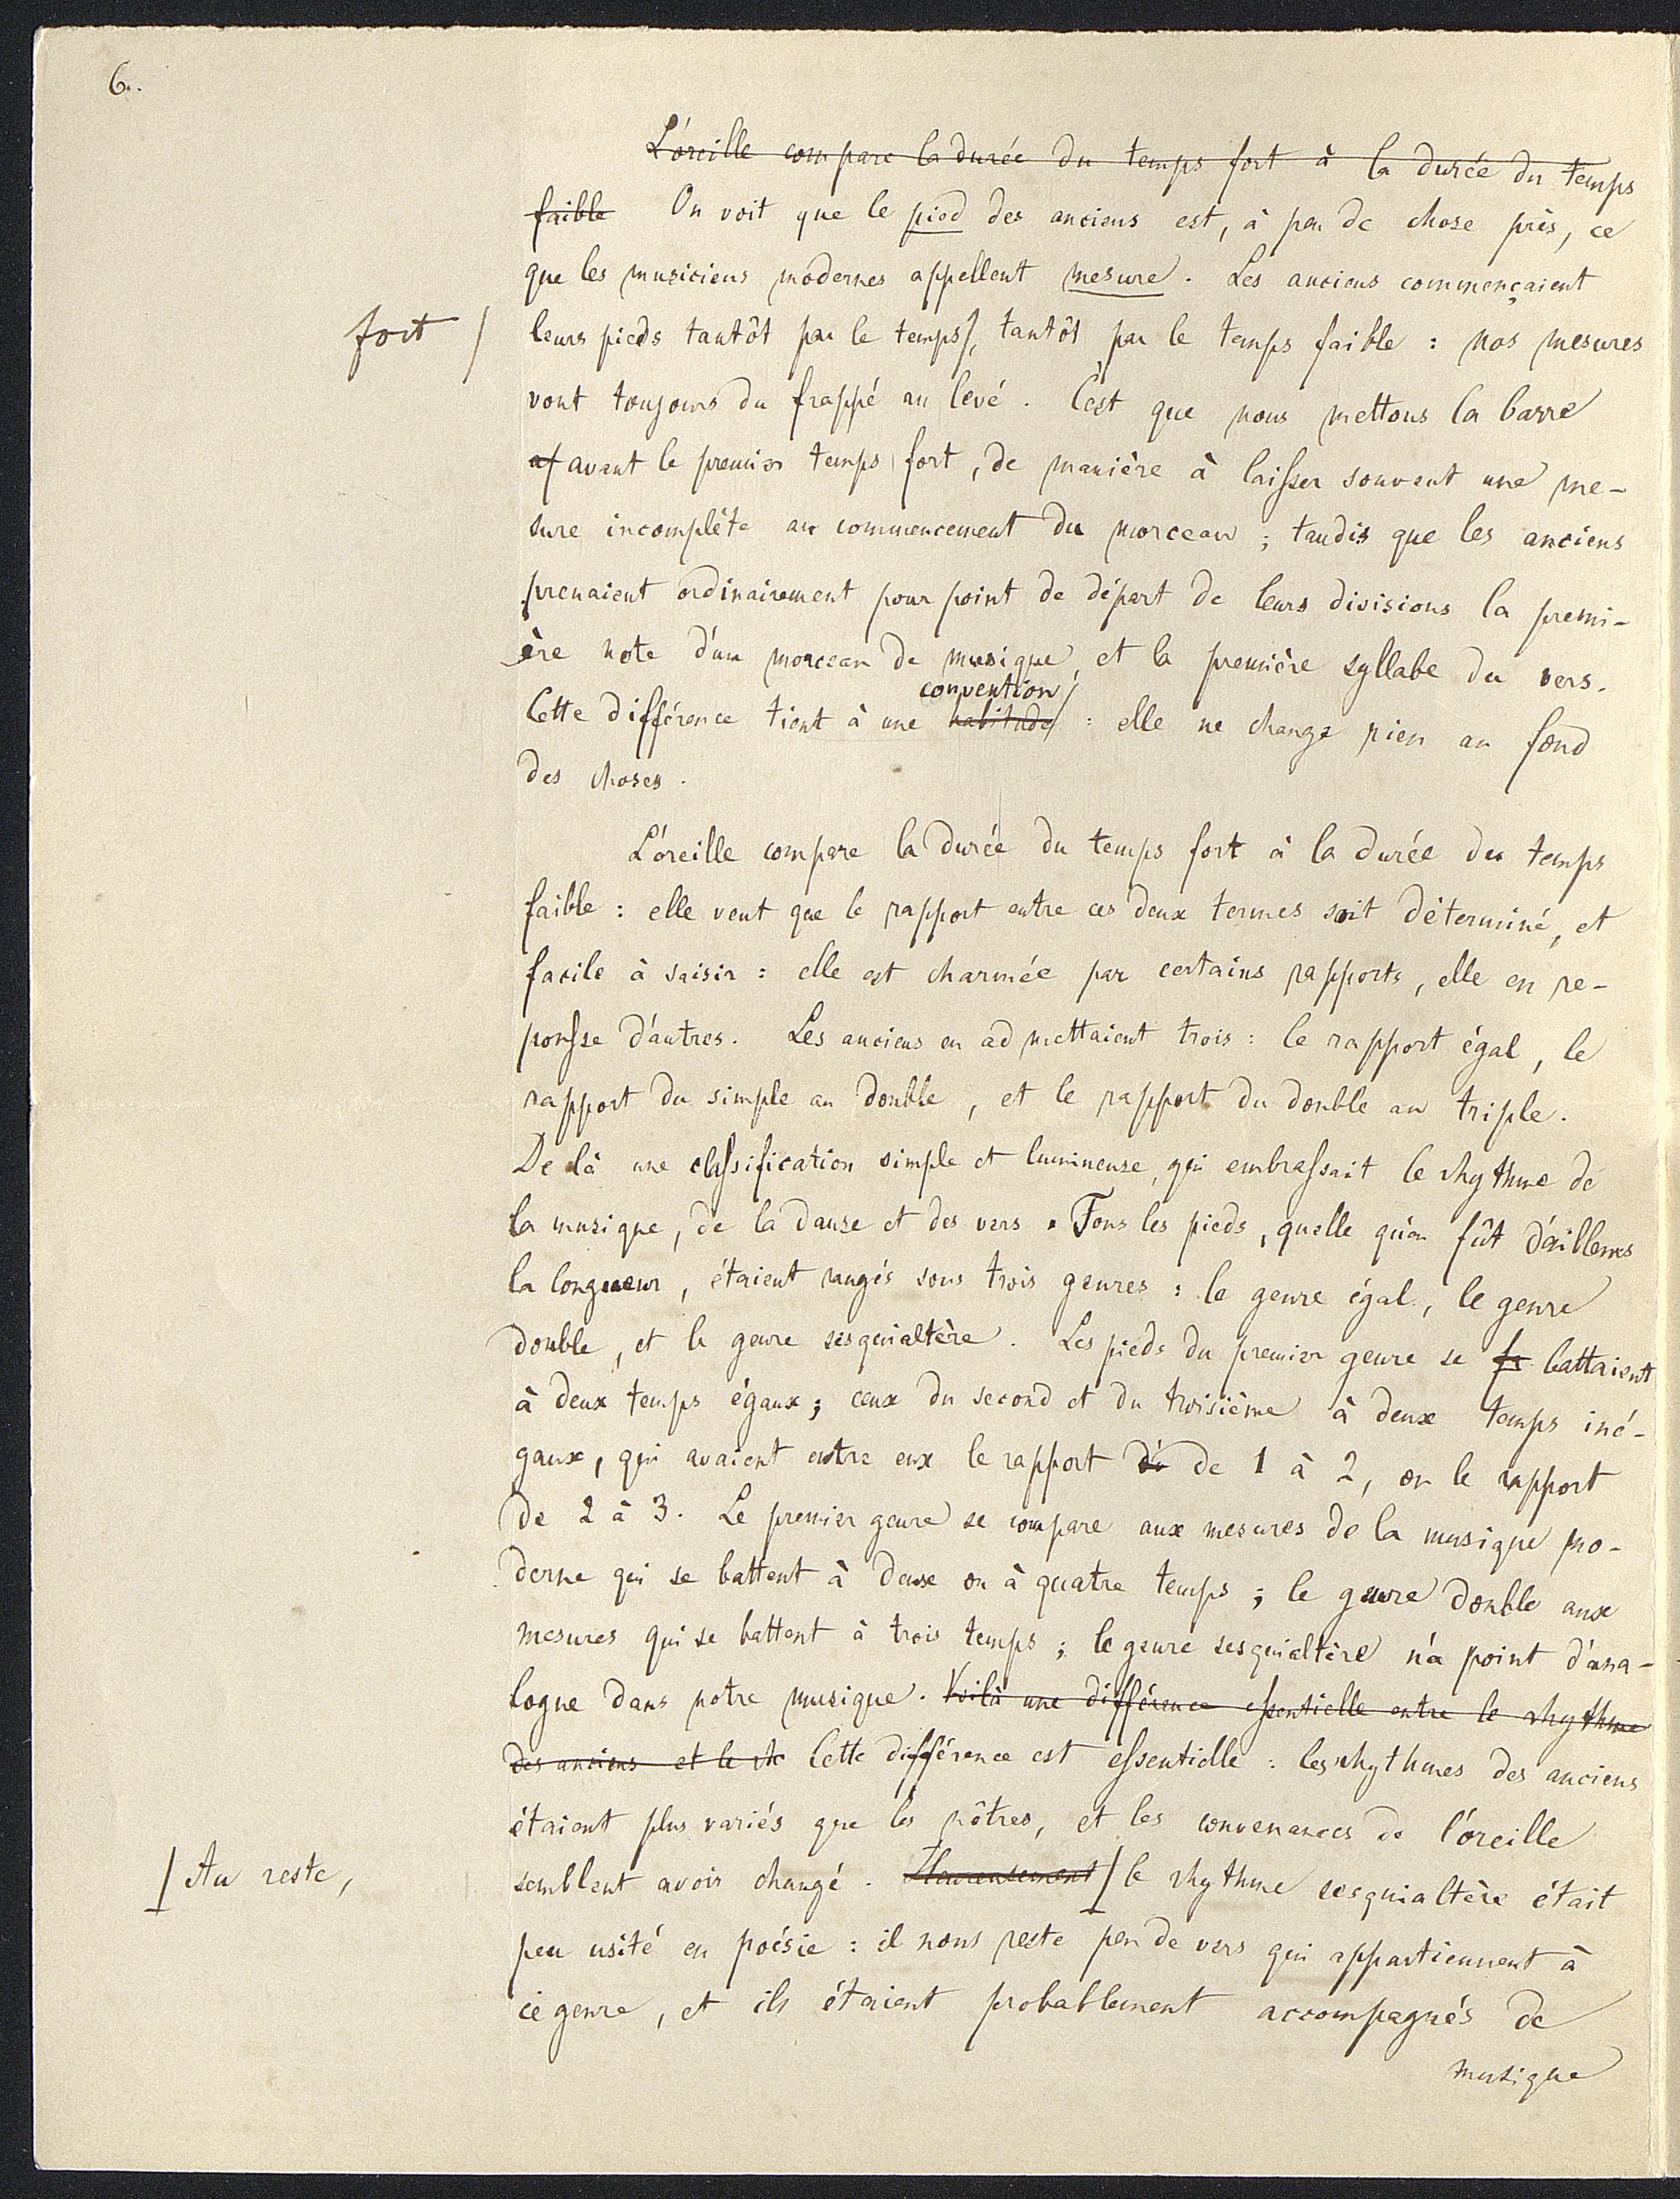 6.
L'oreille compare la durée du temps fort à la durée du temps
faible On voit que le pied des anciens est, à peu de chose près, ce
que les musiciens modernes appellent mesure. Les anciens commençaient
fort /
leurs pieds tantôt par le temps/, tantôt par le temps faible : nos mesures
vont toujours du frappé au levé. C'est que nous mettons la barre
avant le premier temps fort, de manière à laisser souvent une me-
sure incomplète au commencement du morceau ; tandis que les anciens
prenaient ordinairement pour point de départ de leurs divisions la premi-
ère note d'un morceau de musique, et la première syllabe du vers.
convention/
Cette différence tient à une habitude/ : elle ne change rien au fond
des choses.
L'oreille compare la durée du temps fort à la durée du temps
faible : elle veut que le rapport entre ces deux termes soit déterminé, et
facile à saisir : elle est charmée par certains rapports, elle en re-
pousse d'autres. Les anciens en admettaient trois : le rapport égal, le
rapport du simple au double, et le rapport du double au triple.
De là une classification simple et lumineuse, qui embrassait le rhythme de
la musique, de la danse et des vers. Tous les pieds, quelle qu'en fût d'ailleurs
la longueur, étaient rangés sous trois genres : le genre égal, le genre
double, et le genre sesquialtère. Les pieds du premier genre se battaient
à deux temps égaux ; ceux du second et du troisième à deux temps iné-
gaux, qui avaient entre eux le rapport de 1 à 2, ou le rapport
de 2 à 3. Le premier genre se compare aux mesures de la musique mo-
derne qui se battent à deux ou à quatre temps ; le genre double aux
mesures qui se battent à trois temps ; le genre sesquialtère n'a point d'ana-
logue dans notre musique. Voilà une différence essentielle entre le rhythme
des anciens et le rh Cette différence est essentielle : les rhythmes des anciens
étaient plus variés que les nôtres, et les convenances de l'oreille
/ Au reste,
semblent avoir changé. Heureusement / le rhythme sesquialtère était
peu usité en poésie : il nous reste peu de vers qui appartiennent à
ce genre, et ils étaient probablement accompagnés de
musique